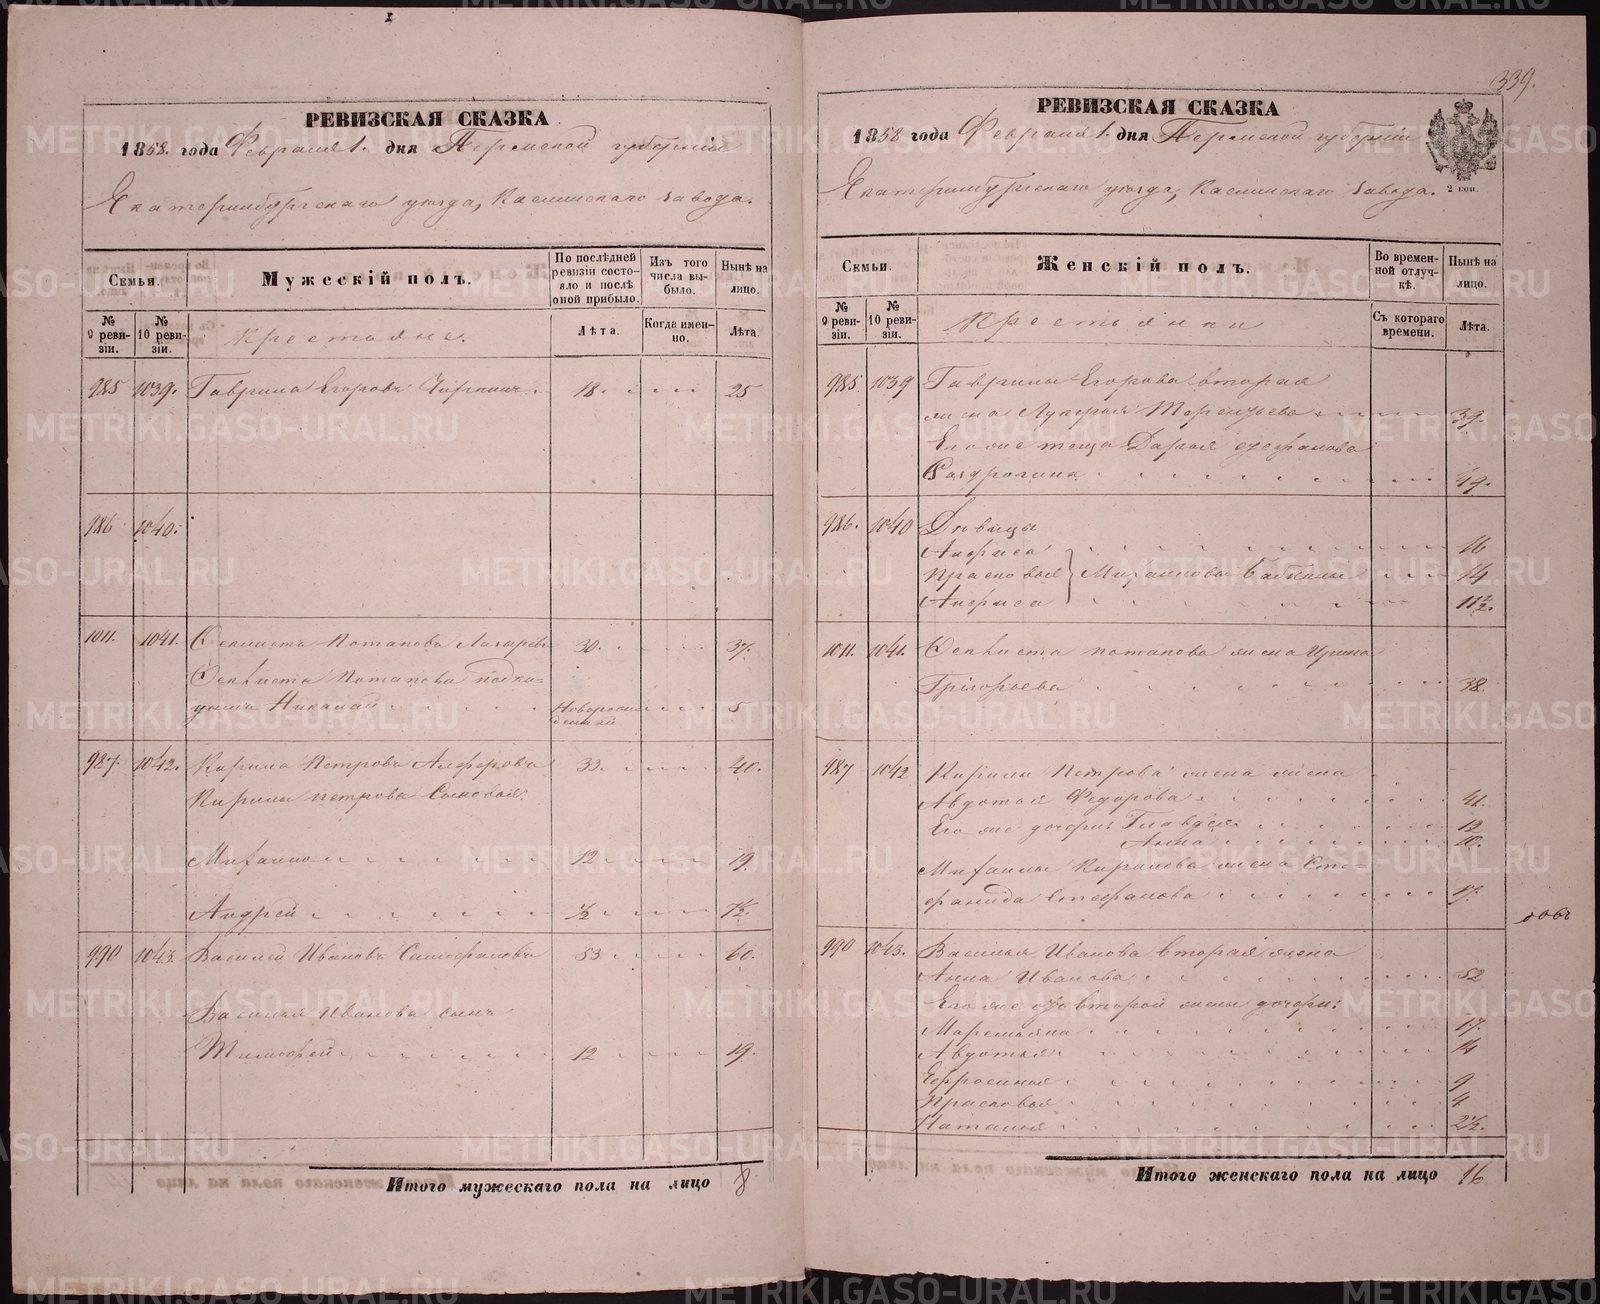 РЕВИЗСКАЯ СКАЗКА
1858 года Февраля 1. дня Пермской губерніи
Екатеринбургскаго уѣзда, Каслинскаго завода.
Семьи.
Мужескій полъ.
По послѣдней ревизіи состояло и послѣ оной прибыло.
Изъ того числа выбыло.
Нынѣ на лицо.
№ 9 ревизіи.
№ 10 ревизіи.
Крестьяне.
Лѣта.
Когда именно.
Лѣта.
985 1039. Гаврила Егоровъ 18. 25
986 1040.
1011. 1041. Потаповъ 30. 37.
Потапова подки-
Николай Новорожденный 5
987. 1042. Кирила Петровъ Алферовъ 33. 40.
Кирилы Петрова Сыновья:
Михаило 12 19.
Андрей 1/2 7 1/2.
990 1043. Василей Ивановъ 53 60.
Василья Иванова сынъ
Тимофей 12 19.
Итого мужескаго пола на лицо 8
339.
РЕВИЗСКАЯ СКАЗКА
1858 года Февраля 1. дня Пермской губерніи
Екатеринбургскаго уѣзда, Каслинскаго завода.
2 коп.
Семьи.
Женскій полъ.
Во временной отлучкѣ.
Нынѣ на лицо.
№ 9 ревизіи.
№ 10 ревизіи.
Крестьянки
Съ котораго времени.
Лѣта.
985. 1039 Гаврилы Егорова вторая
жена Лукерья Терентьева 39.
Его же теща Дарья
49.
986. 1040 Дѣвицы
Анфиса 16
Прасковья 14
Анфиса 11 1/2.
1011. 1041. Потапова жена Ирина
Григорьева 38.
987 1042 Кирилы Петрова жена жена
Авдотья Федорова 41.
Его же дочери Клавдея 12
Анна 10.
Михаилы Кирилова жена Сте-
фанида Степанова 19.
990 1043. Василья Иванова вторая жена
Анна Иванова 52
Его же отъ второй жены дочери:
Маремьяна 17.
Авдотья 14
Ефросинья 9
Прасковья 4
Наталья 2 1/2.
Итого женскаго пола на лицо 16
METRIKI.GASO-URAL.RU